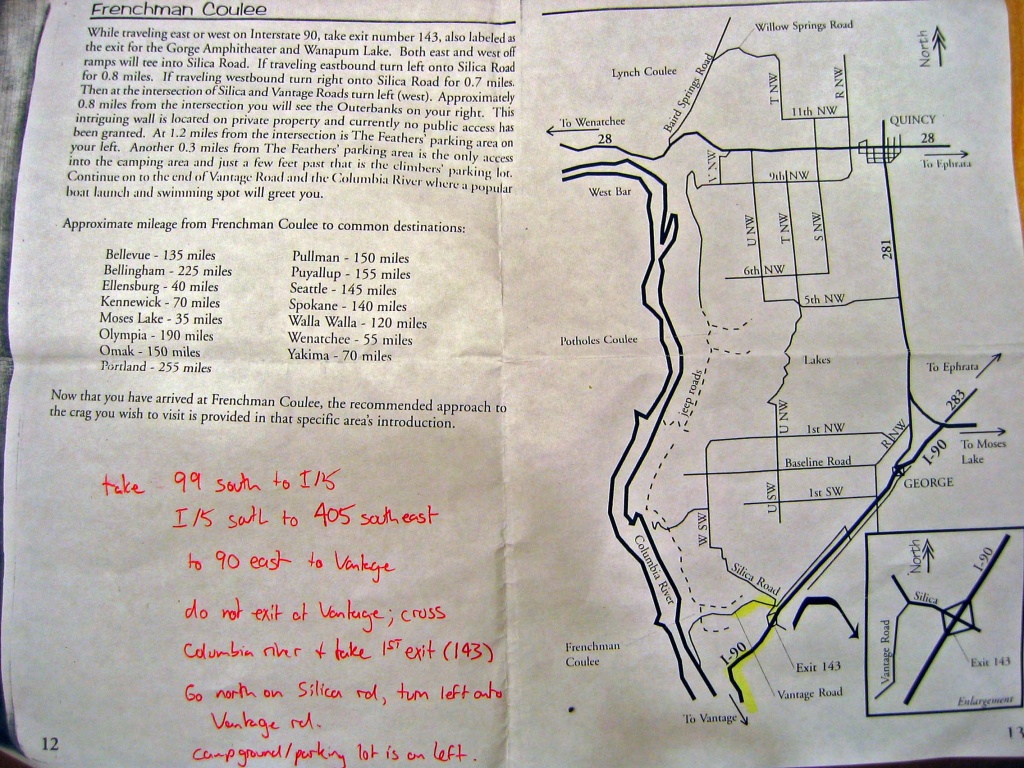 Frenchman Coulee
While traveling east or west on Interstate 90, take exit number 143, also labeled as
the exit for the Gorge Amphitheater and Wanapum Lake. Both east and west off
ramps will tee into Silica Road. If traveling eastbound turn left onto Silica Road
for 0.8 miles. If traveling westbound turn right onto Silica Road for 0.7 miles.
Then at the intersection of Silica and Vantage Roads turn left (west). Approximately
0.8 miles from the intersection you will see the Outerbanks on your right. This
intriguing wall is located on private property and currently no public access has
been granted. At 1.2 miles from the intersection is The Feathers' parking area on
your left. Another 0.3 miles from The Feathers' parking area is the only access
into the camping area and just a few feet past that is the climbers' parking lot.
Continue on to the end of Vantage Road and the Columbia River where a popular
boat launch and swimming spot will greet you.
Approximate mileage from Frenchman Coulee to common destinations:
Bellevue - 135 miles
Bellingham - 225 miles
Ellensburg - 40 miles
Kennewick - 70 miles
Moses Lake - 35 miles
Olympia - 190 miles
Omak - 150 miles
Portland - 255 miles
Pullman - 150 miles
Puyallup - 155 miles
Seattle - 145 miles
Spokane - 140 miles
Walla Walla - 120 miles
Wenatchee - 55 miles
Yakima - 70 miles
Now that you have arrived at Frenchman Coulee, the recommended approach to
the crag you wish to visit is provided in that specific area's introduction.
take 99 south to I/5
I/5 south to 405 southeast
to 90 east to Vantage
do not exit at Vantage; cross
Columbia river + take 1ST exit (143)
Go north on Silica rd, turn left onto
Vantage rd.
campground/parking lot is on left.
12
Willow Springs Road
North
Lynch Coulee
Baird Springs Road
T NW
R NW
11th NW
To Wenatchee
28
QUINCY
28
To Ephrata
V NW
9th NW
West Bar
U NW
T NW
S NW
281
6th NW
5th NW
Potholes Coulee
Lakes
To Ephrata
jeep roads
283
U NW
1st NW
R NW
I-90
To Moses
Lake
Baseline Road
GEORGE
1st SW
U SW
W SW
Columbia River
Silica Road
Frenchman
Coulee
I-90
Exit 143
Vantage Road
To Vantage
North
I-90
Silica
Vantage Road
Exit 143
Enlargement
13